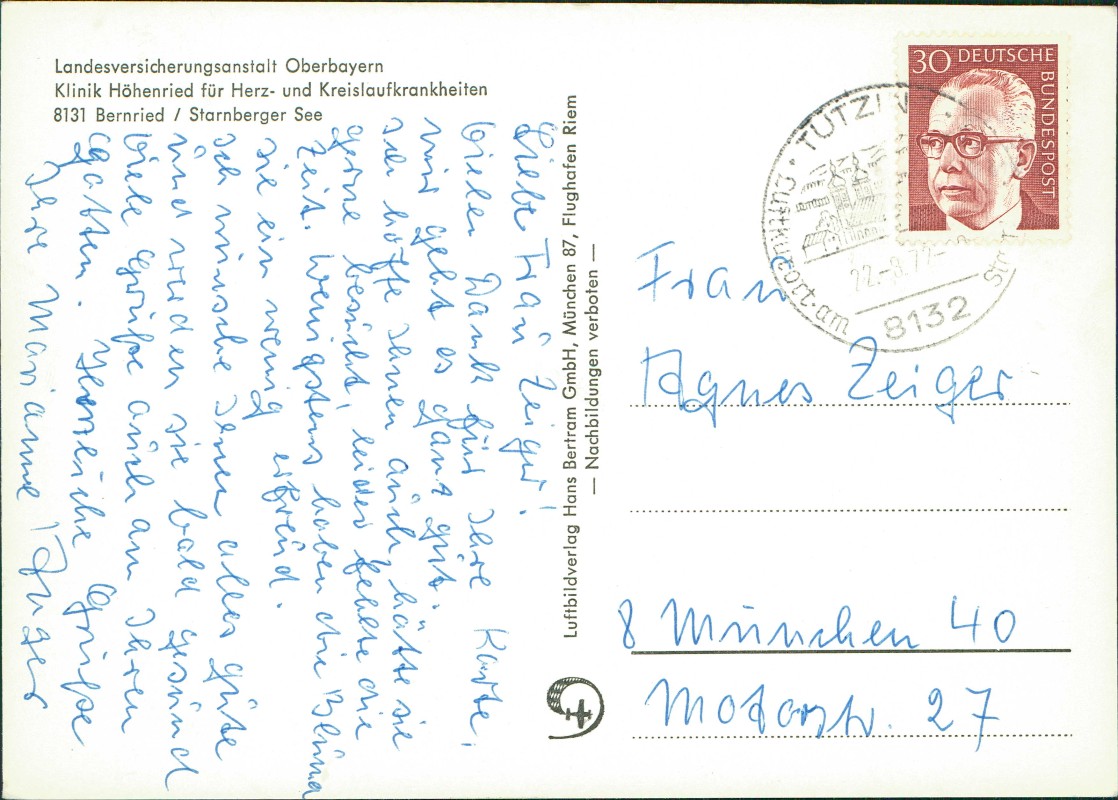 Landesversicherungsanstalt Oberbayern
Klinik Höhenried für Herz- und Kreislaufkrankheiten
8131 Bernried / Starnberger See
Liebe Frau Zeiger!
Vielen Dank für ihre Karte!
mir geht es ganz gut.
ich hoffe ihnen auch, hätte sie
gerne besucht, leider fehlte die
Zeit. wenigstens haben die Bluma
sie ein wenig erfreud.
ich wünsche ihnen alles gute
und werden sie bald gesund
Viele Grüße auch an ihren
Gatten. Herzliche Grüße
Ihre Marianne
Luftbildverlag Hans Bertram GmbH, München 87, Flughafen Riem
— Nachbildungen verboten —
30 DEUTSCHE
BUNDESPOST
TUTZI
Luftkurort am
22.-8.72-
8132
Frau
Agnes Zeiger
8 München 40
Motorstr. 27